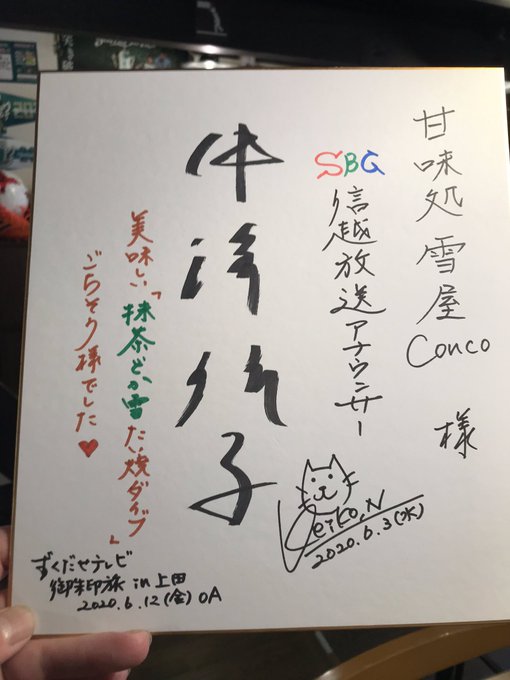 甘味処 雪屋 Conco 様
SBC 信越放送アナウンサー
中澤佳子
美味しい「抹茶どか雪たい焼ダイブ」
ごちそう様でした♥
Keiko.N
2020.6.3(水)
ずくだせテレビ
御朱印旅 in 上田
2020.6.12(金) OA